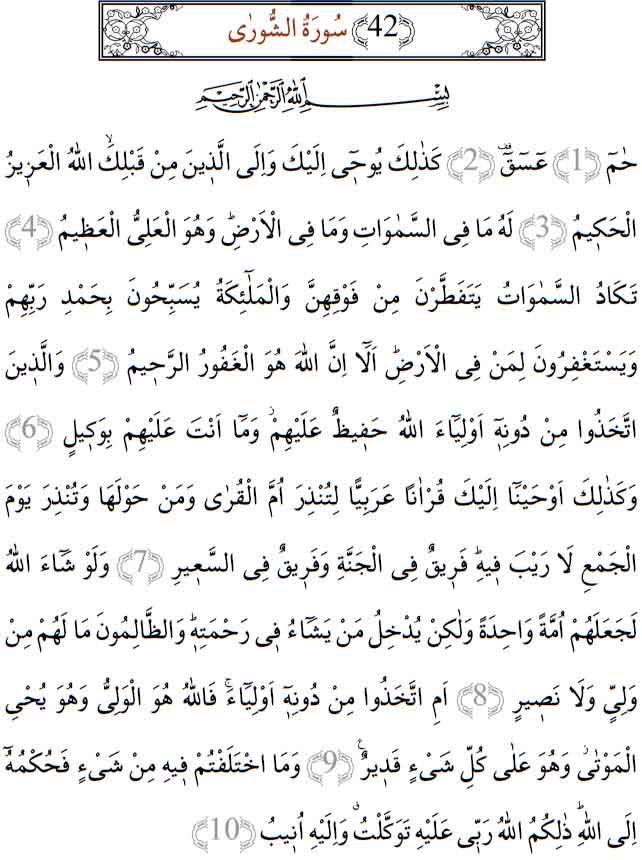 سُورَةُ الشُّورٰى (42)
بِسْمِ اللّٰهِ الرَّحْمٰنِ الرَّحِيمِ
حٰمٓ (1) عٓسٓقٓ (2) كَذٰلِكَ يُوحٖٓى اِلَيْكَ وَاِلَى الَّذٖينَ مِنْ قَبْلِكَۙ اللّٰهُ الْعَزٖيزُ
الْحَكٖيمُ (3) لَهُ مَا فِى السَّمٰوَاتِ وَمَا فِى الْاَرْضِؕ وَهُوَ الْعَلِىُّ الْعَظٖيمُ (4)
تَكَادُ السَّمٰوَاتُ يَتَفَطَّرْنَ مِنْ فَوْقِهِنَّ وَالْمَلٰٓئِكَةُ يُسَبِّحُونَ بِحَمْدِ رَبِّهِمْ
وَيَسْتَغْفِرُونَ لِمَنْ فِى الْاَرْضِؕ اَلَٓا اِنَّ اللّٰهَ هُوَ الْغَفُورُ الرَّحٖيمُ (5) وَالَّذٖينَ
اتَّخَذُوا مِنْ دُونِهٖٓ اَوْلِيَٓاءَ اللّٰهُ حَفٖيظٌ عَلَيْهِمْؗ وَمَٓا اَنْتَ عَلَيْهِمْ بِوَكٖيلٍ (6)
وَكَذٰلِكَ اَوْحَيْنَٓا اِلَيْكَ قُرْاٰنًا عَرَبِيًّا لِتُنْذِرَ اُمَّ الْقُرٰى وَمَنْ حَوْلَهَا وَتُنْذِرَ يَوْمَ
الْجَمْعِ لَا رَيْبَ فٖيهِؕ فَرٖيقٌ فِى الْجَنَّةِ وَفَرٖيقٌ فِى السَّعٖيرِ (7) وَلَوْ شَٓاءَ اللّٰهُ
لَجَعَلَهُمْ اُمَّةً وَاحِدَةً وَلٰكِنْ يُدْخِلُ مَنْ يَشَٓاءُ فٖى رَحْمَتِهٖؕ وَالظَّالِمُونَ مَا لَهُمْ مِنْ
وَلِىٍّ وَلَا نَصٖيرٍ (8) اَمِ اتَّخَذُوا مِنْ دُونِهٖٓ اَوْلِيَٓاءَۚ فَاللّٰهُ هُوَ الْوَلِىُّ وَهُوَ يُحْيِ
الْمَوْتٰىؗ وَهُوَ عَلٰى كُلِّ شَیْءٍ قَدٖيرٌۚ (9) وَمَا اخْتَلَفْتُمْ فٖيهِ مِنْ شَیْءٍ فَحُكْمُهُٓ
اِلَى اللّٰهِؕ ذٰلِكُمُ اللّٰهُ رَبّٖى عَلَيْهِ تَوَكَّلْتُۗ وَاِلَيْهِ اُنٖيبُ (10)